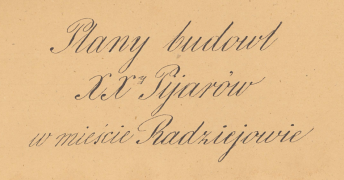 Plany budowl
XXży Pijarów
w mieście Radziejowie